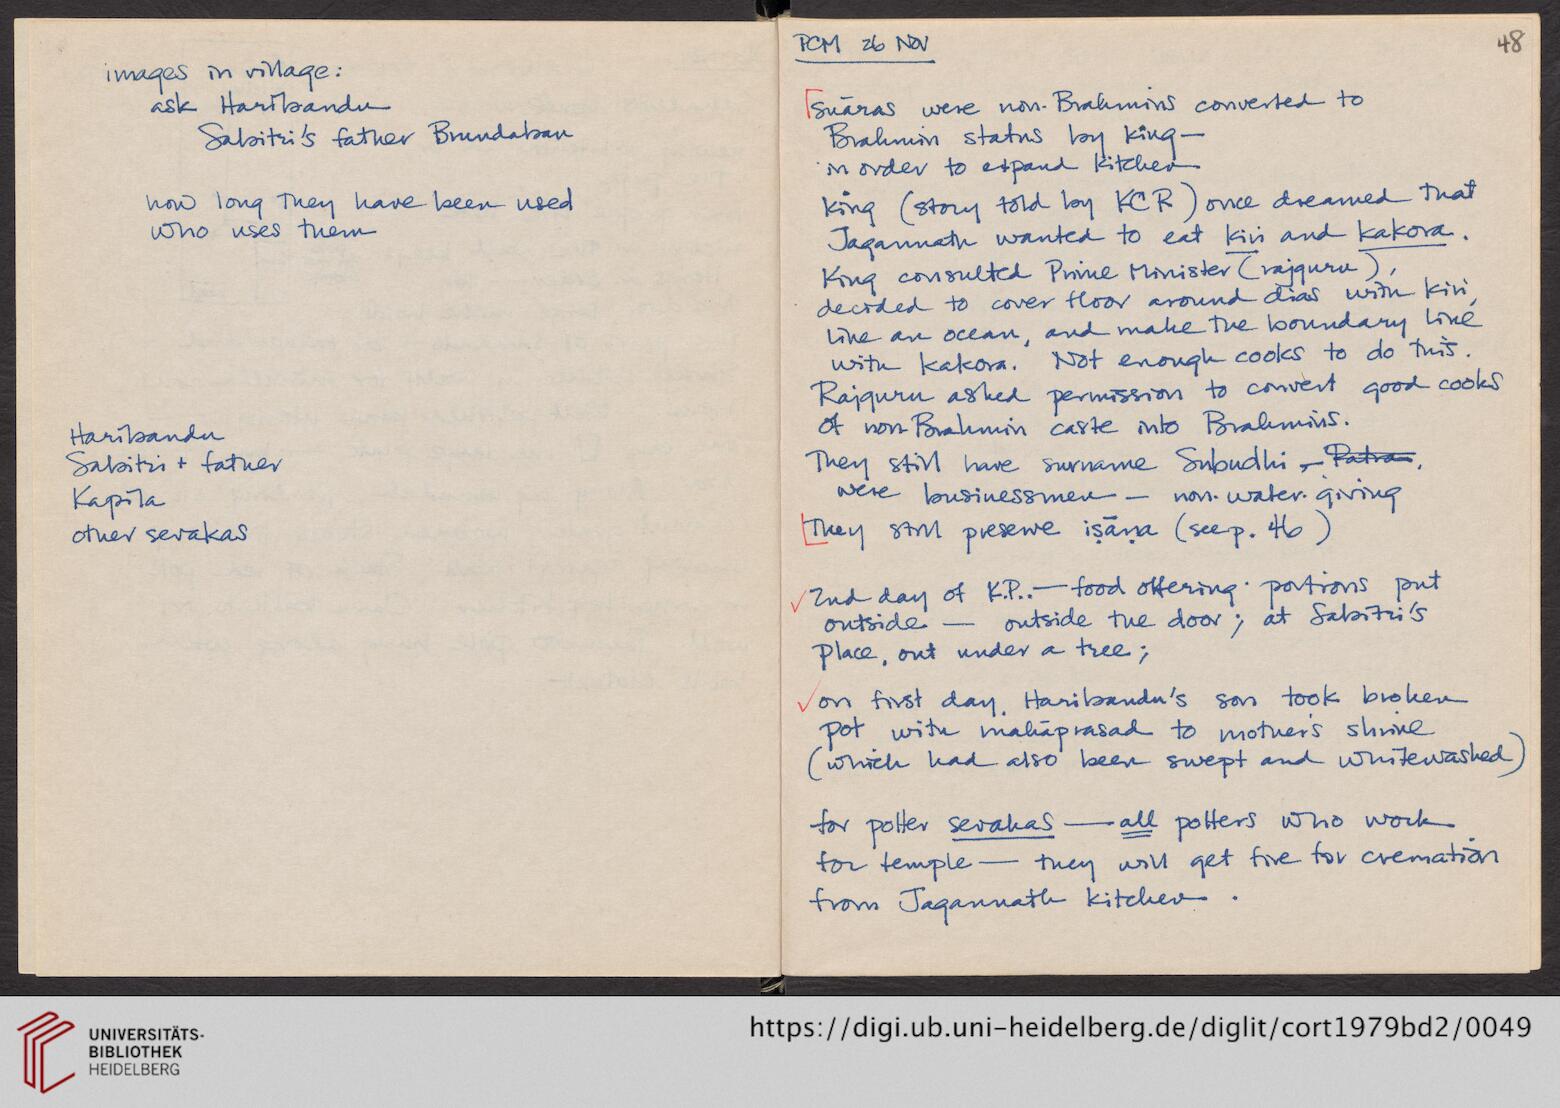 images in village:
ask Haribandu
Sabitri's father Brundaban
how long they have been used
who uses them
Haribandu
Sabitri + father
Kapila
other sevakas
PCM 26 NOV
48
suāras were non-Brahmins converted to
Brahmin status by King —
in order to expand kitchen
King (story told by KCR) once dreamed that
Jagannath wanted to eat kiri and kakora.
King consulted Prime Minister (rajguru),
decided to cover floor around dias with kiri,
like an ocean, and make the boundary line
with kakora. Not enough cooks to do this.
Rajguru asked permission to convert good cooks
of non-Brahmin caste into Brahmins.
They still have surname Subudhi, Patra,
were businessmen — non-water-giving
They still preserve iṣāṇa (see p. 46)
2nd day of K.P. — food offering portions put
outside — outside the door; at Sabitri's
place, out under a tree;
on first day, Haribandu's son took broken
pot with mahāprasad to mother's shrine
(which had also been swept and whitewashed)
for potter sevakas — all potters who work
for temple — they will get fire for cremation
from Jagannath kitchen.
UNIVERSITÄTS-
BIBLIOTHEK
HEIDELBERG
https://digi.ub.uni-heidelberg.de/diglit/cort1979bd2/0049